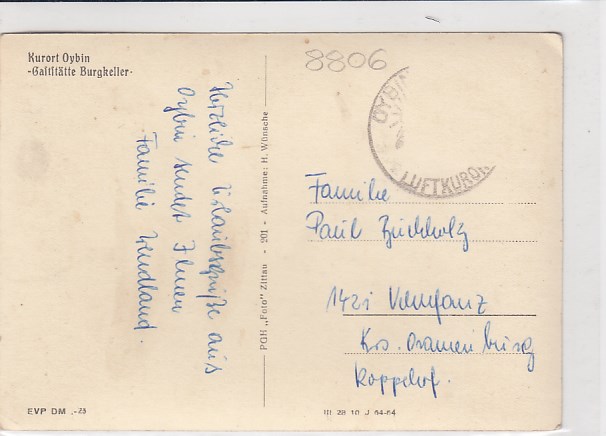 Kurort Oybin
-Gaststätte Burgkeller-
Herzliche Urlaubsgrüße aus
Oybin sendet Ihnen
Familie Wendland.
PGH „Foto" Zittau - 201 - Aufnahme: H. Wünsche
8806
OYBIN
LUFTKUROR
Familie
Paul Buchholz
1421 Vehlefanz
Krs. Oranienburg
Koppehof.
EVP DM -,23
III 28 10 J 64-64